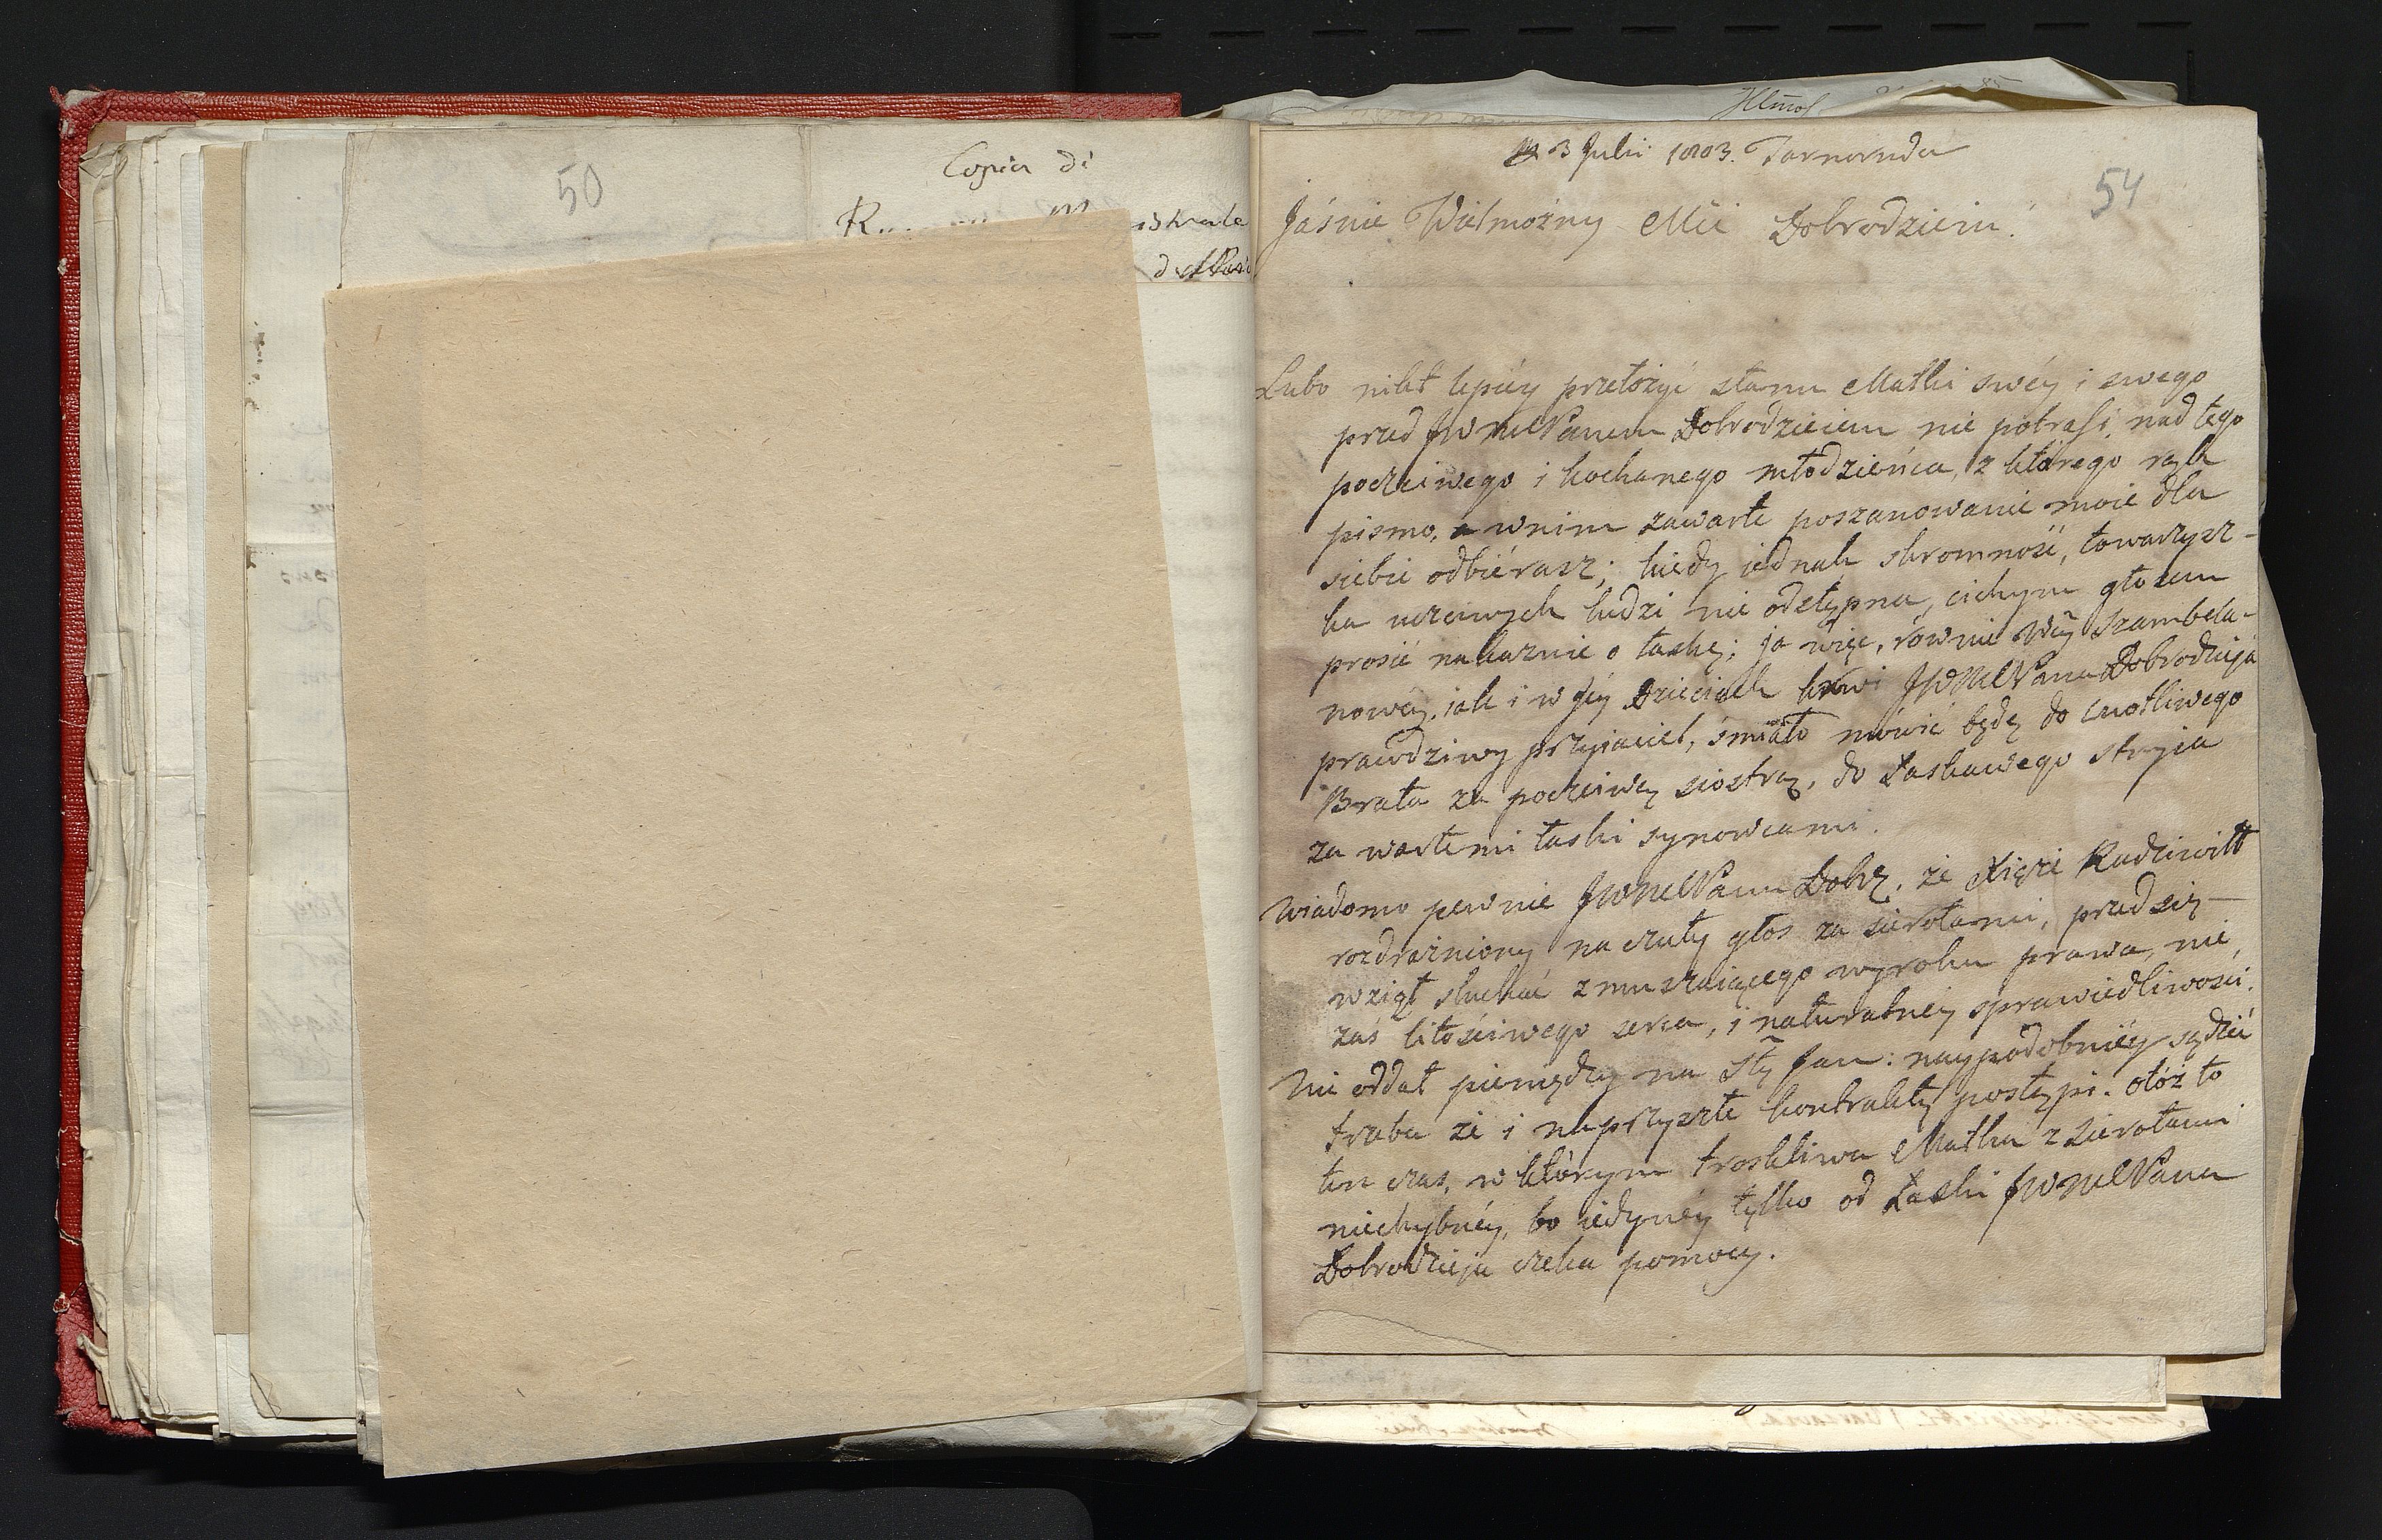 50
Copia di
3 Julii 1803. Tarnoruda
54
Jaśnie Wielmożny Mci Dobrodzieiu!
Lubo nikt lepiéy przełożyć stanu Matki swéy i swego
przed JWMWPanem Dobrodzieiem nie potrafi, nad tego
poczciwego i kochanego młodzieńca, z którego rąk
pismo, a wnim zawarte poszanowanie moie dla
siebie odbiérasz; kiedy iednak skromność, towarzysz-
ka uczciwych ludzi nie odstępna, cichym głosem
prosić nakaznie o łaskę; ja więc, równie WJ Szambela-
nowéy, iak i w Jéy Dzieciach krwi JWMWPana Dobrodzieja
prawdziwy przyiaciel, śmiało mówić będę do cnotliwego
Brata za poczciwą siostrą, do Łaskawego stryia
za wartemi łaski synowcami.
Wiadomo pewnie JWMWPanu Dobr. że Xiąże Radziwiłł
rozdrażniony na czuły głos za sierotami, przedsię-
wziął słuchać zmuszaiącego wyroku prawa, nie
zaś litościwego serca, i naturalnéy sprawiedliwości.
Nie oddał pieniędzy na Sty Jan: naypodobniéy sądzić
trzeba że i na przyszłe kontrakty postąpi. otóż to
ten czas, w którym troskliwa Matka z Sierotami
niechybnéy, bo iedynéy tylko od Łaski JWMWPana
Dobrodzieja czeka pomocy.